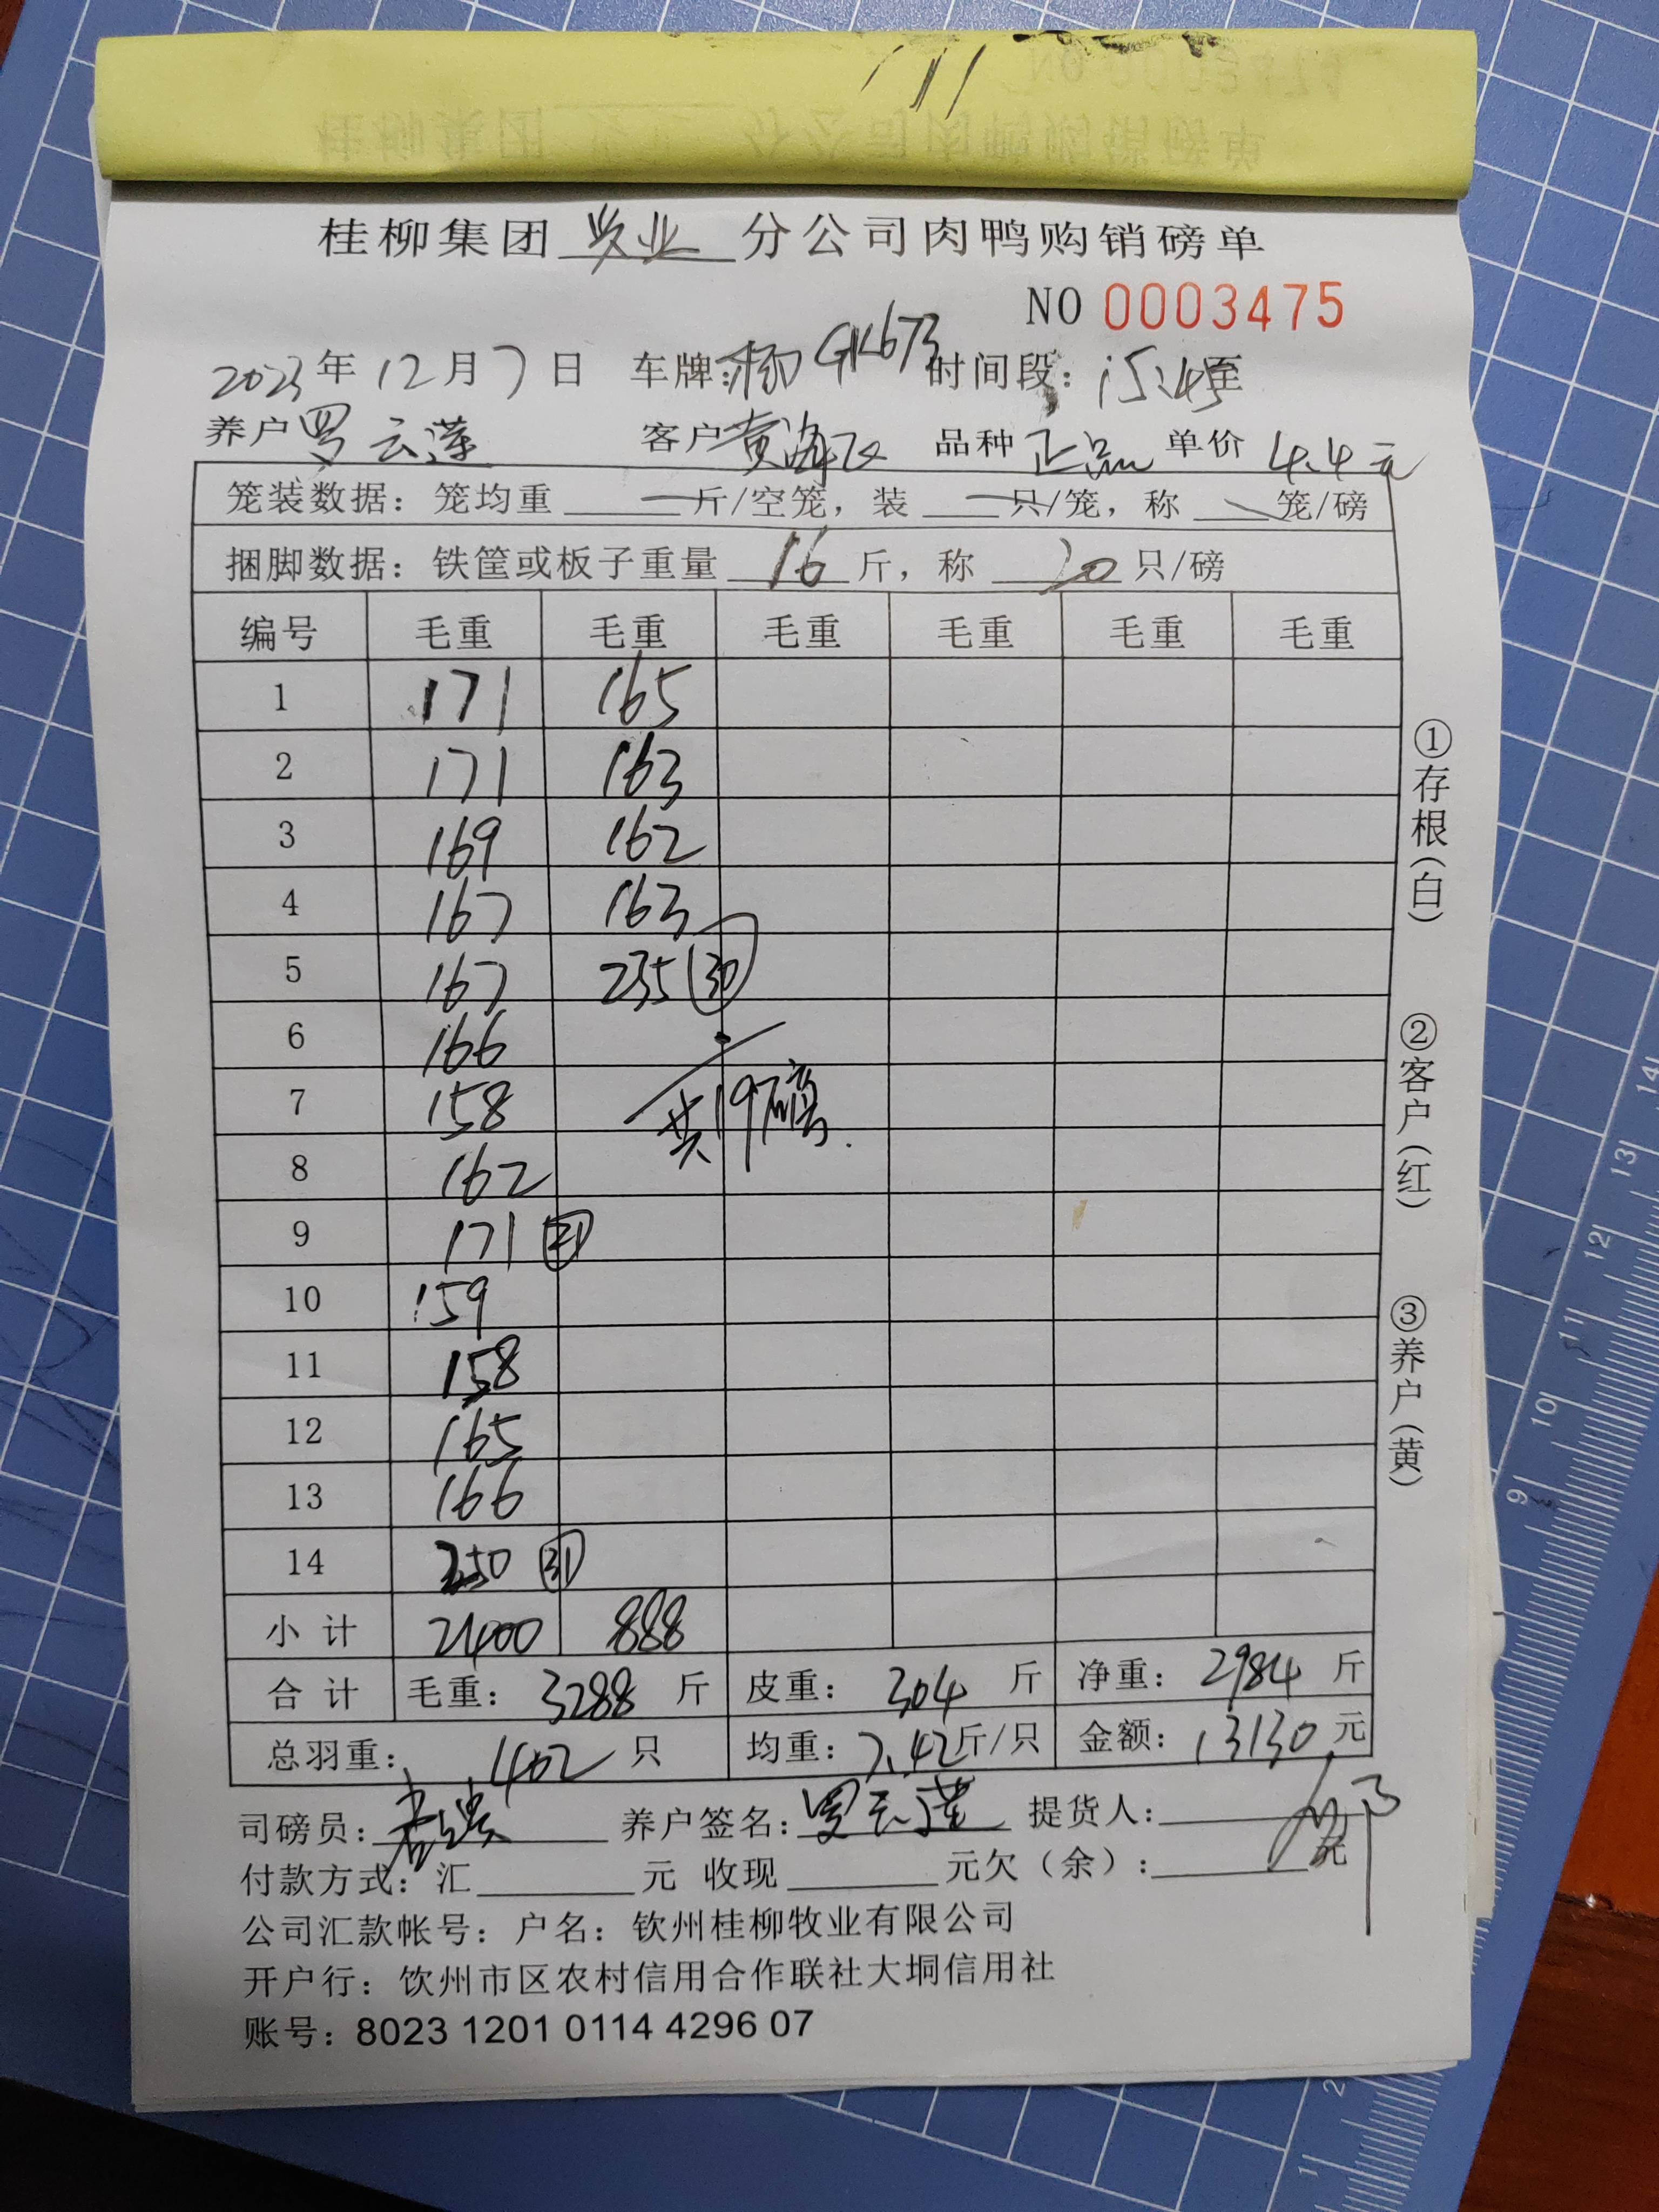 桂柳集团 牧业 分公司肉鸭购销磅单
NO 0003475
2023年12月7日 车牌: GK673 时间段: 15:45至
养户 罗云莲 客户 黄海 品种 正品 单价 4.4元
笼装数据: 笼均重 斤/空笼, 装 只/笼, 称 笼/磅
捆脚数据: 铁筐或板子重量 16 斤, 称 20 只/磅
编号 毛重 毛重 毛重 毛重 毛重 毛重
1 171 165
2 171 163
3 169 162
4 167 163
5 167 235 ㉚
6 166
7 158 共19磅.
8 162
9 171 ㉑
10 159
11 158
12 165
13 166
14 250 ㉛
小计 2400 888
合计 毛重: 3288 斤 皮重: 304 斤 净重: 2984 斤
总羽重: 402 只 均重: 7.42斤/只 金额: 13130元
司磅员: 养户签名: 罗云莲 提货人:
付款方式: 汇 元 收现 元欠(余): 元
公司汇款帐号: 户名: 钦州桂柳牧业有限公司
开户行: 饮州市区农村信用合作联社大垌信用社
账号: 8023 1201 0114 4296 07
①存根(白)
②客户(红)
③养户(黄)
14
13
12
11
10
9
2
1